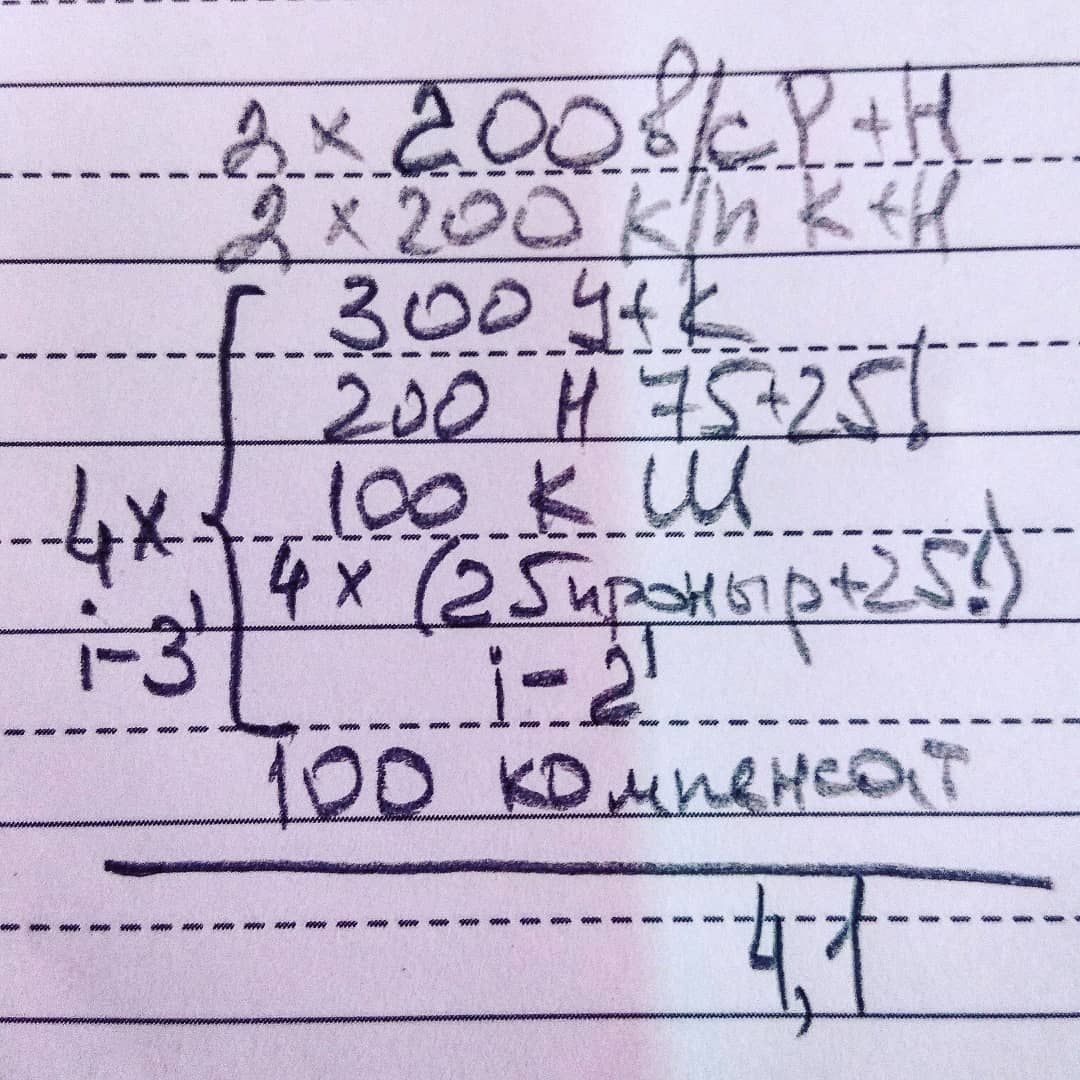 2 x 200 в/с Р+Н
2 x 200 к/п К+Н
300 У+К
200 Н 75+25!
100 К Ш
4x
4 x (25 проныр+25!)
i-3'
i-2'
100 компенсат
4,1